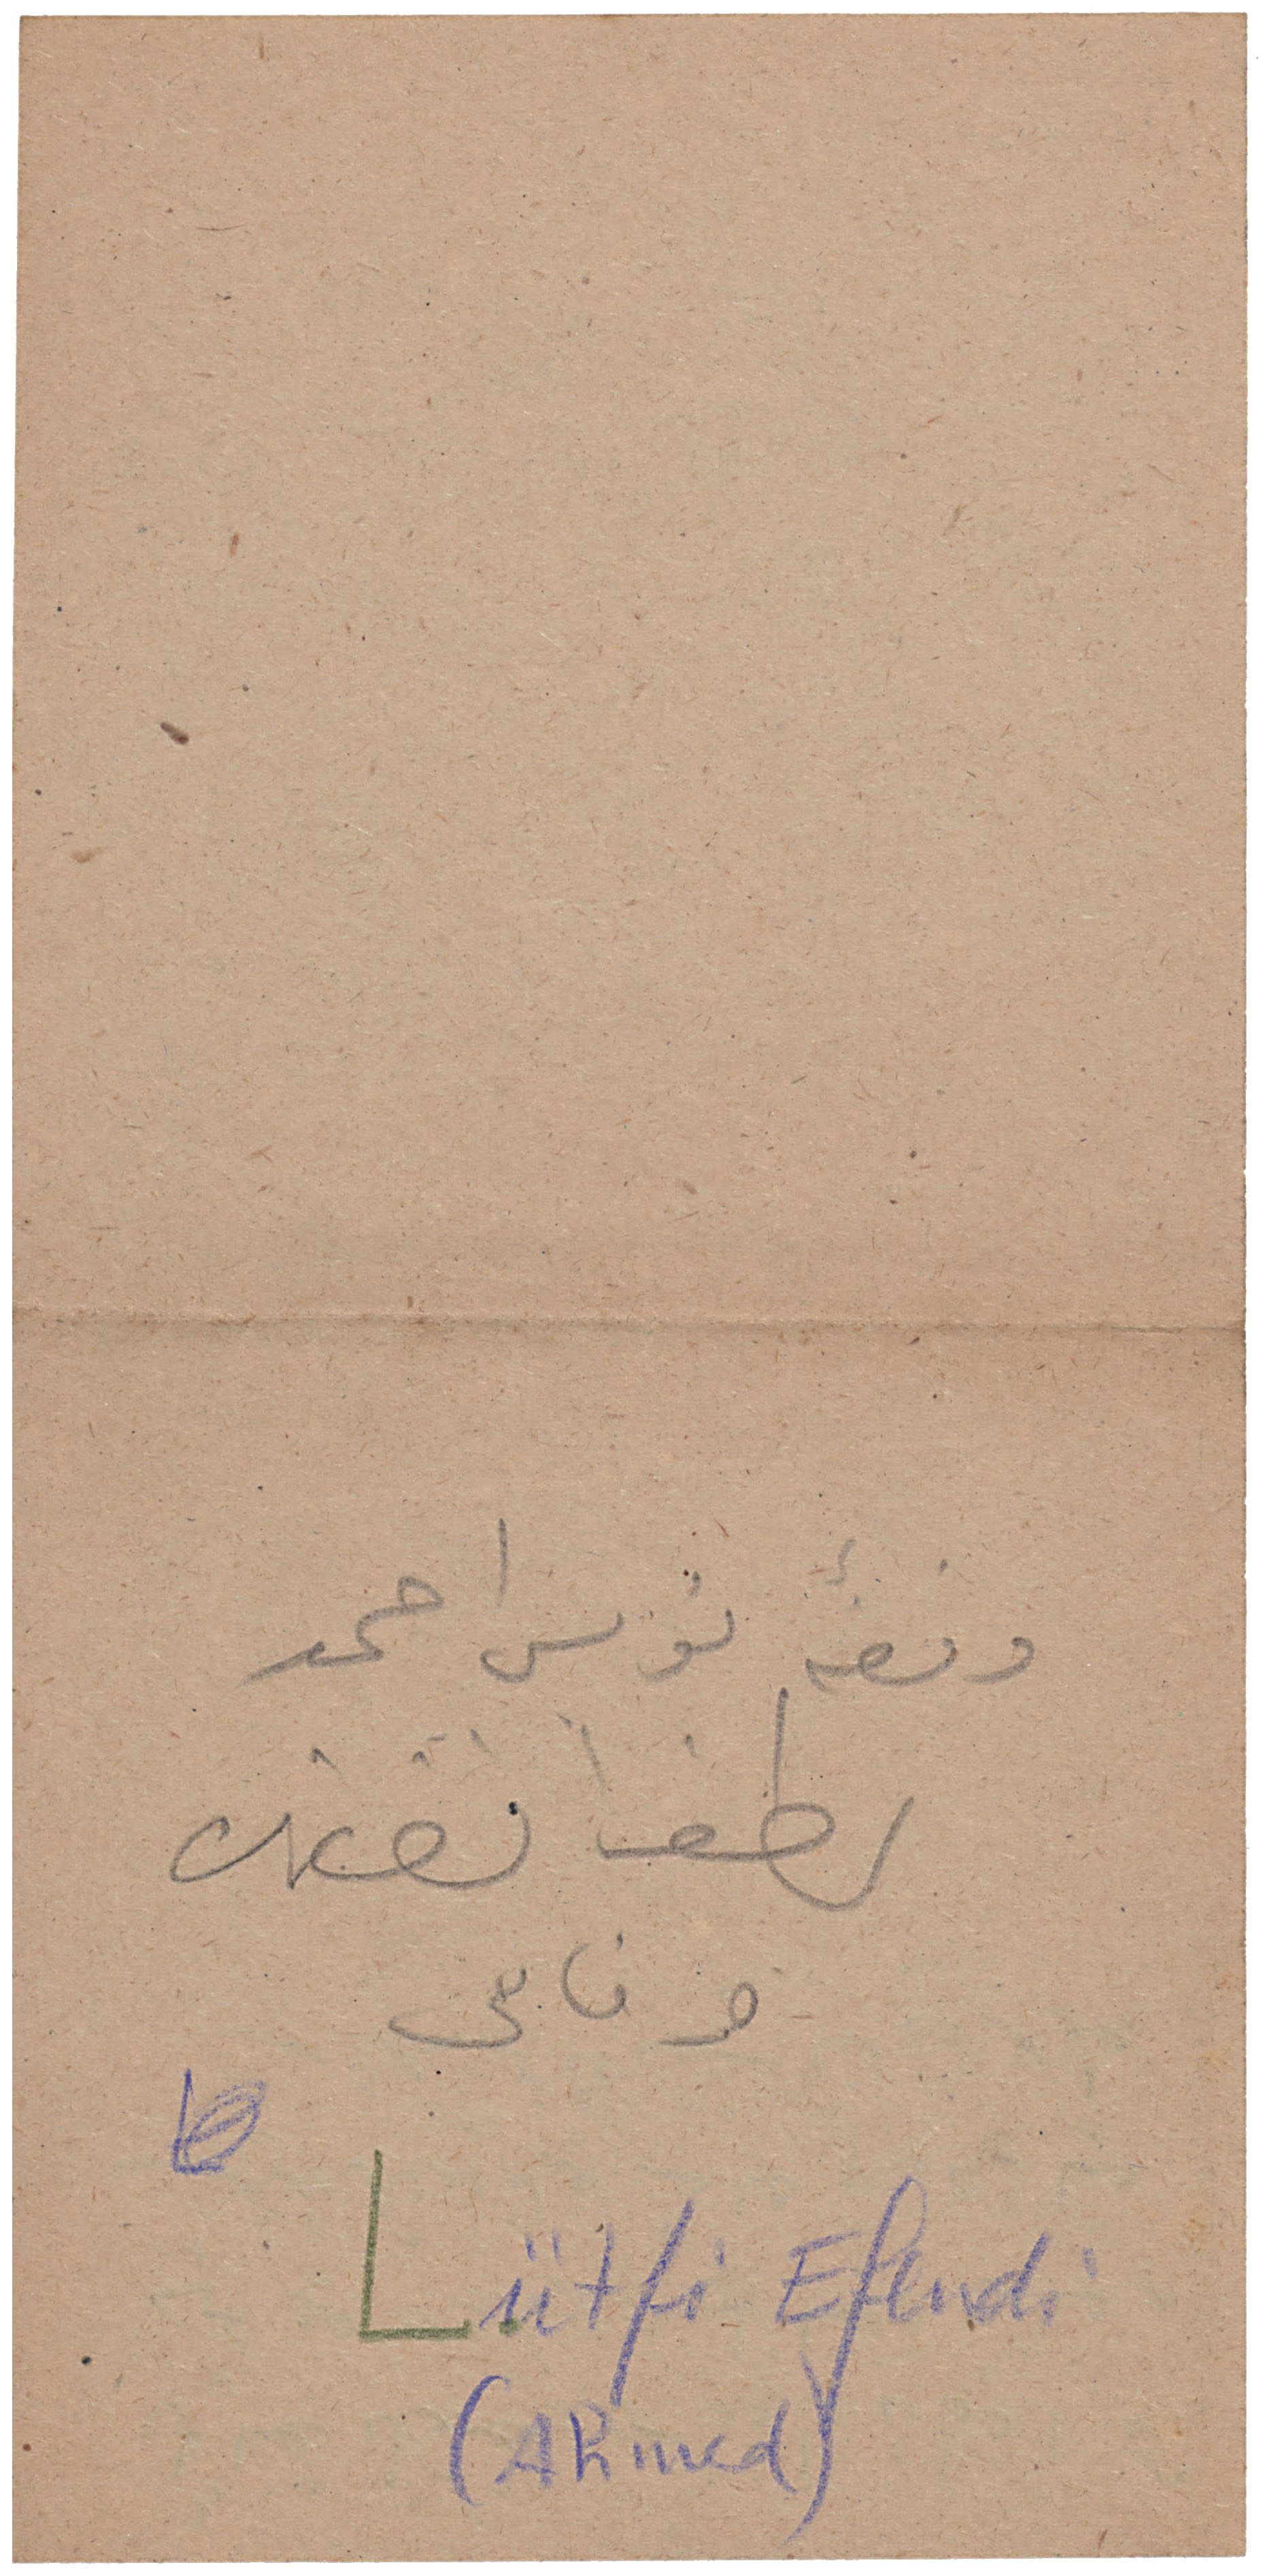 وقعه نویس احمد
لطفی افندینك
وفاتی
Lütfi Efendi
(Ahmed)